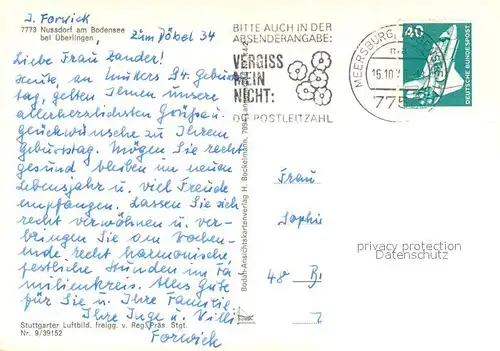 J. Forwick
7773 Nussdorf am Bodensee
bei Überlingen,
zum Döbel 34
Liebe Frau Zander!
Heute, an Mutters 94. Geburts-
tag, gelten Ihnen unsere
allerherzlichsten Grüße u.
Glückwünsche zu Ihrem
Geburtstag. Mögen Sie recht
gesund bleiben im neuen
Lebensjahr u. viel Freude
empfangen. Lassen Sie sich
recht verwöhnen u. ver-
bringen Sie am Wochen-
ende recht harmonische,
festliche Stunden im Fa-
milienkreis. Alles gute
für Sie u. Ihre Familie.
Ihre Inge u. Willi
Forwick
Stuttgarter Luftbild. freigg. v. Reg. Präs. Stgt.
Nr. 9/39152
Bodan-Ansichtskartenverlag H. Bockelmann, 7994
BITTE AUCH IN DER
ABSENDERANGABE:
VERGISS
MEIN
NICHT:
DIE POSTLEITZAHL
MEERSBURG
16.10.7
775
40
DEUTSCHE BUNDESPOST
Frau
Sophie
48 Bi
privacy protection
Datenschutz